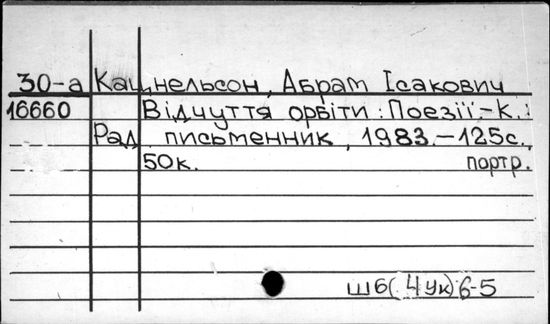 30-а Кацнельсон, Абрам Ісакович
16660 Відчуття орбіти : Поезії. – К. :
Рад. письменник, 1983. – 125с.,
50к. портр.
Ш6(4Ук)6-5